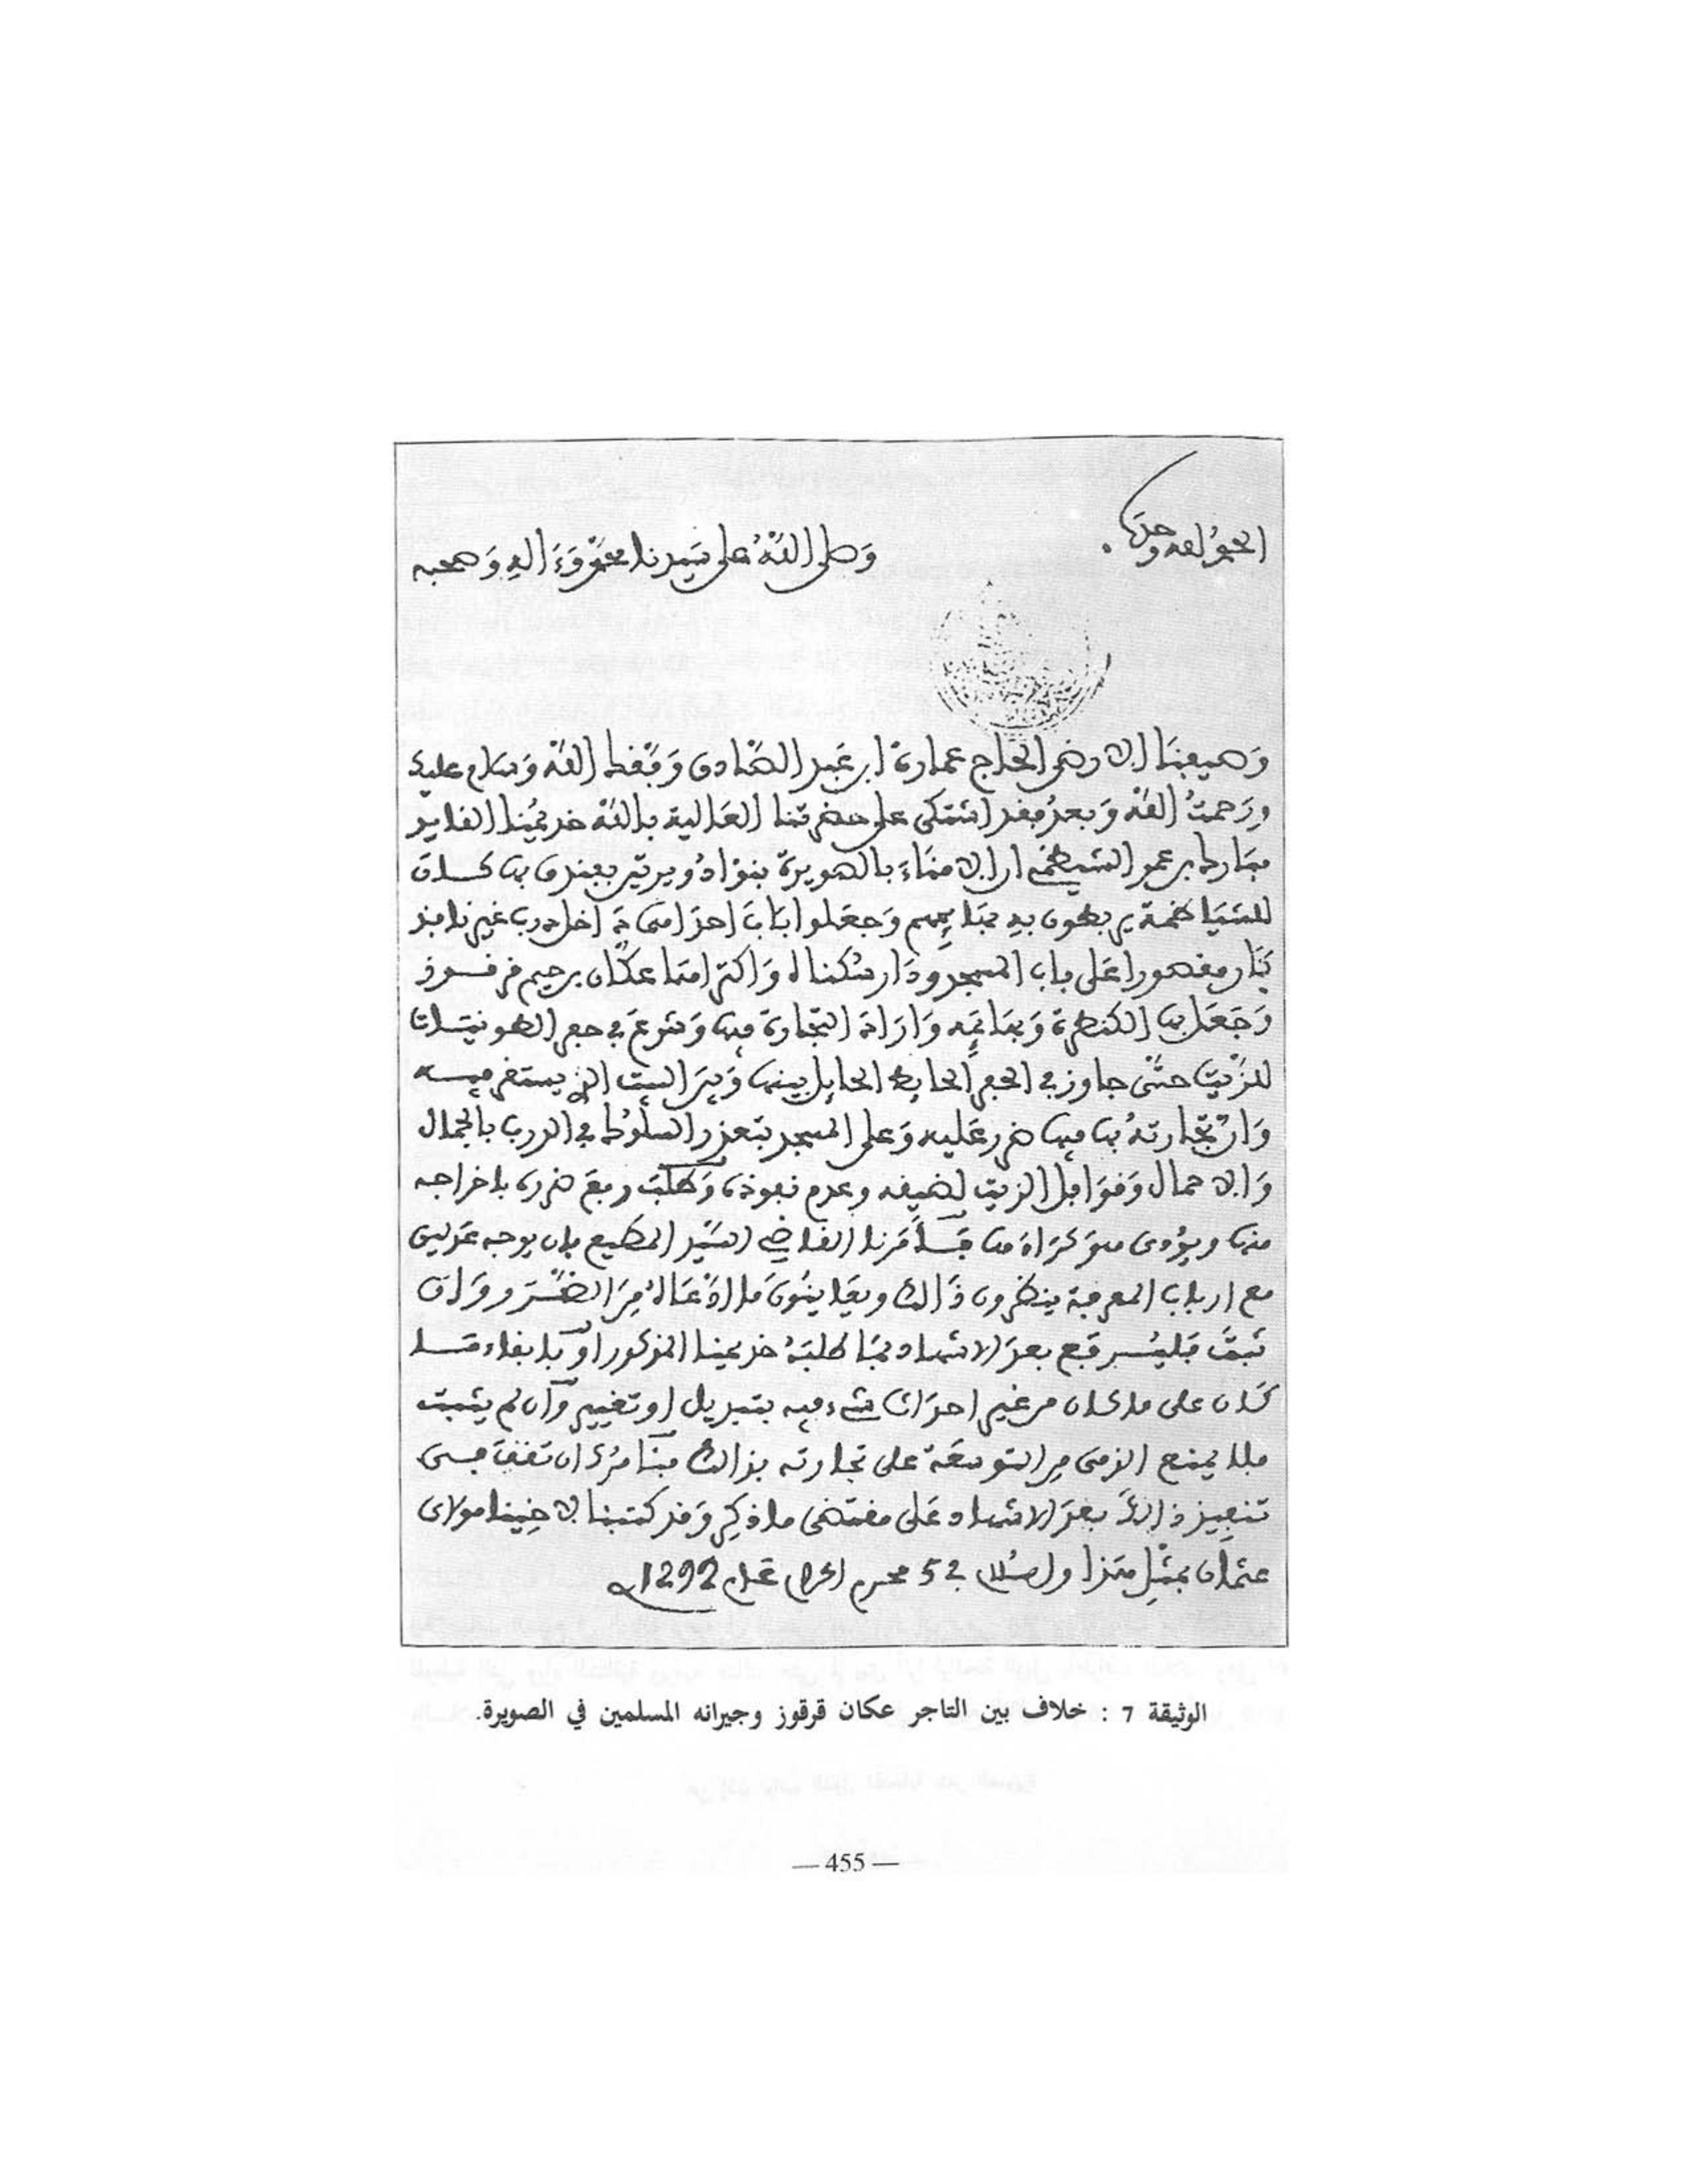 الحمد لله وحده
وصلى الله على سيدنا محمد وءاله وصحبه
وصيفنا الارضى الحاج عمارة ابن عبد الصادق وفقك الله وسلام عليك
ورحمت الله وبعد فقد اشتكى على حضرتنا العالية بالله خديمنا القايد
مبارك بن عمر الشيظمي ان الامناء بالصويرة بنوا دويرتين بفندق بها كان
للشياظمة يربطون به بهايمهم وجعلوا بابا احداهما داخل درب غير نافذ
كان مقصورا على باب المسجد ودار سكناه واكتراهما عكان بن حيم قرقوز
وجعل بها الكنطرة وبهايمه واراد التجارة فيها وشرع في حفر الطونيسلات
للزيت حتى جاوز في الحفر الحايط الحايل بينها وبين البيت الذي يستقر فيه
وان تجارته بها فيها ضرر عليه وعلى المسجد بتعذر السلوك في الدرب بالجمال
والاحمال وقوافل الزيت لضيقه وعدم نفوذه وطلب رفع ضرره باخراجه
منها ويؤدي هو كراءها فامرنا القاضي السيد المطيع بان يوجه عدلين
مع ارباب المعرفة ينظرون ذالك ويعاينون ما ادعاه من الضرر وان
ثبت فليرفع بعد الاشهاد بما طلبه خديمنا المذكور او بابقاء ما
كان على ما كان من غير احداث شيء فيه بتبديل او تغيير وان لم يثبت
فلا يمنع الذمي من التوسعة على تجارته بذالك فنامرك ان تقف في
تنفيذ ذالك بعد الاشهاد على مقتضى ما ذكر وقد كتبنا لاخينا مولاي
عثمان بمثل هذا والسلام في 5 محرم الحرام عام 1292
الوثيقة 7 : خلاف بين التاجر عكان قرقوز وجيرانه المسلمين في الصويرة.
— 455 —